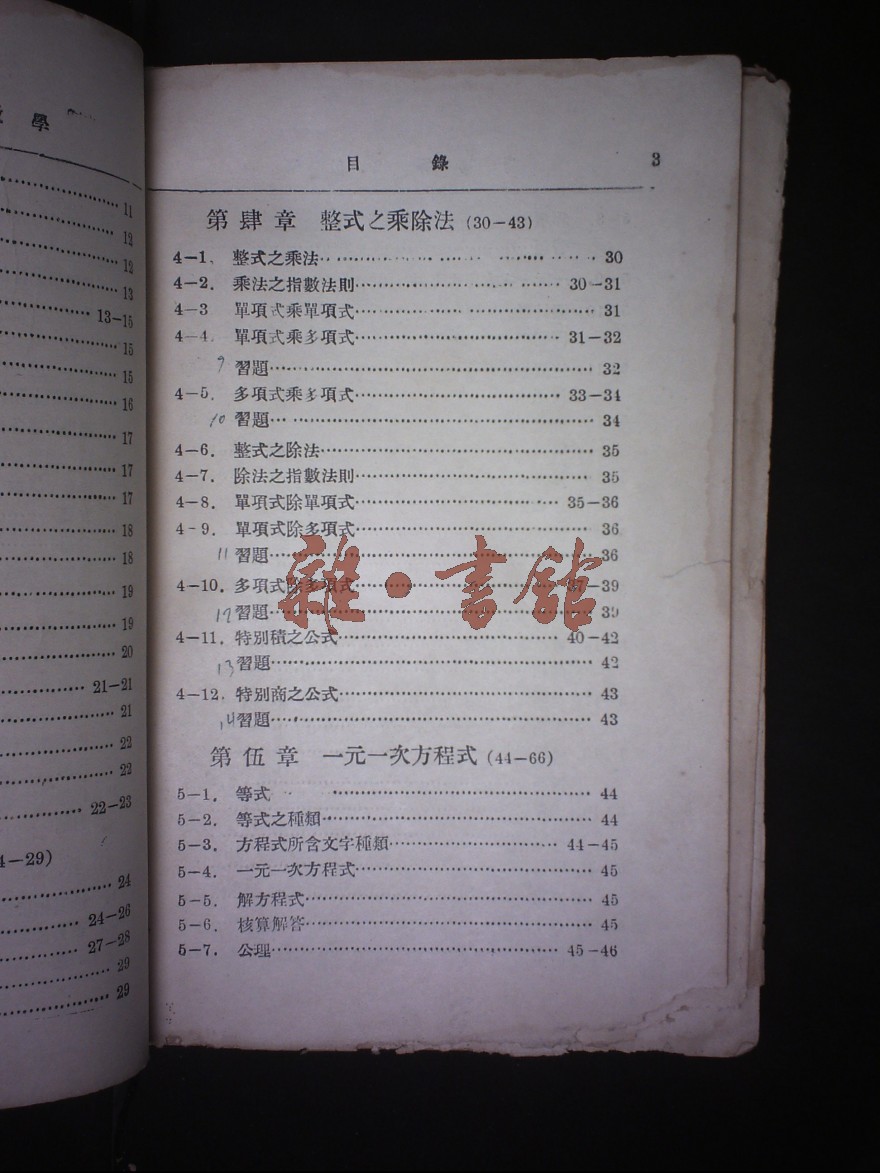 學
11
12
12
13
13-15
15
15
16
17
17
17
18
18
19
19
20
21-21
21
22
22
22-23
4-29)
24
24-26
27-28
29
29
目 錄 3
第肆章 整式之乘除法 (30-43)
4-1. 整式之乘法 30
4-2. 乘法之指數法則 30-31
4-3 單項式乘單項式 31
4-4. 單項式乘多項式 31-32
9 習題 32
4-5. 多項式乘多項式 33-34
10 習題 34
4-6. 整式之除法 35
4-7. 除法之指數法則 35
4-8. 單項式除單項式 35-36
4-9. 單項式除多項式 36
11 習題 36
4-10. 多項式除多項式 37-39
12 習題 39
4-11. 特別積之公式 40-42
13 習題 42
4-12. 特别商之公式 43
14 習題 43
第伍章 一元一次方程式 (44-66)
5-1. 等式 44
5-2. 等式之種類 44
5-3. 方程式所含文字種類 44-45
5-4. 一元一次方程式 45
5-5. 解方程式 45
5-6. 核算解答 45
5-7. 公理 45-46
雜·書館